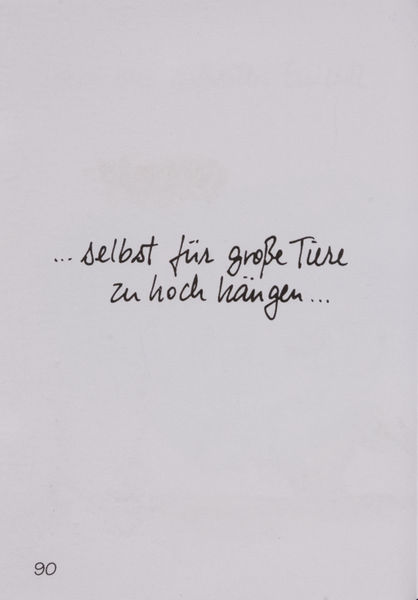 ... selbst für große Tiere
zu hoch hängen...
90